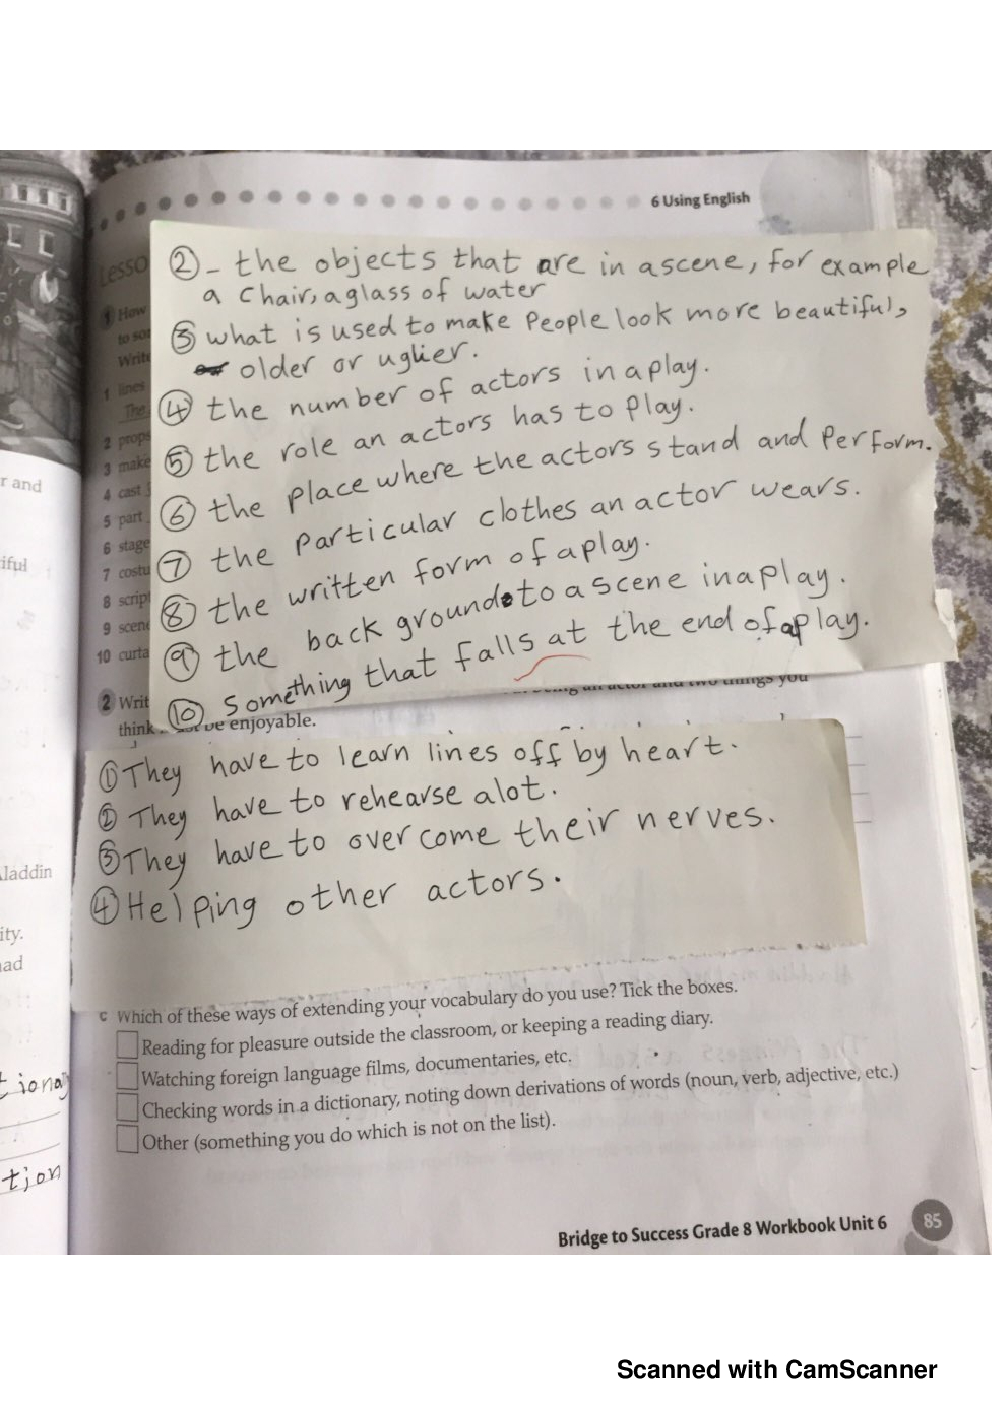 6 Using English
Lesso
1 How
to so
Write
1 lines
The
2 props
3 make
4 cast
5 part
6 stage
7 costu
8 script
9 scene
10 curta
② - the objects that are in a scene, for example
a chair, a glass of water
③ what is used to make People look more beautiful,
older or uglier.
④ the number of actors in a play.
⑤ the role an actors has to play.
⑥ the place where the actors stand and Perform.
⑦ the Particular clothes an actor wears.
⑧ the written form of a play.
⑨ the back ground to a scene in a play.
⑩ Something that falls at the end of a play.
2 Writ
being an actor and two things you
think be enjoyable.
① They have to learn lines off by heart.
② They have to rehearse alot.
③ They have to over come their nerves.
④ Helping other actors.
c Which of these ways of extending your vocabulary do you use? Tick the boxes.
Reading for pleasure outside the classroom, or keeping a reading diary.
Watching foreign language films, documentaries, etc.
Checking words in a dictionary, noting down derivations of words (noun, verb, adjective, etc.)
Other (something you do which is not on the list).
Bridge to Success Grade 8 Workbook Unit 6 85
r and
iful
Aladdin
ity.
ad
tional
tion
Scanned with CamScanner